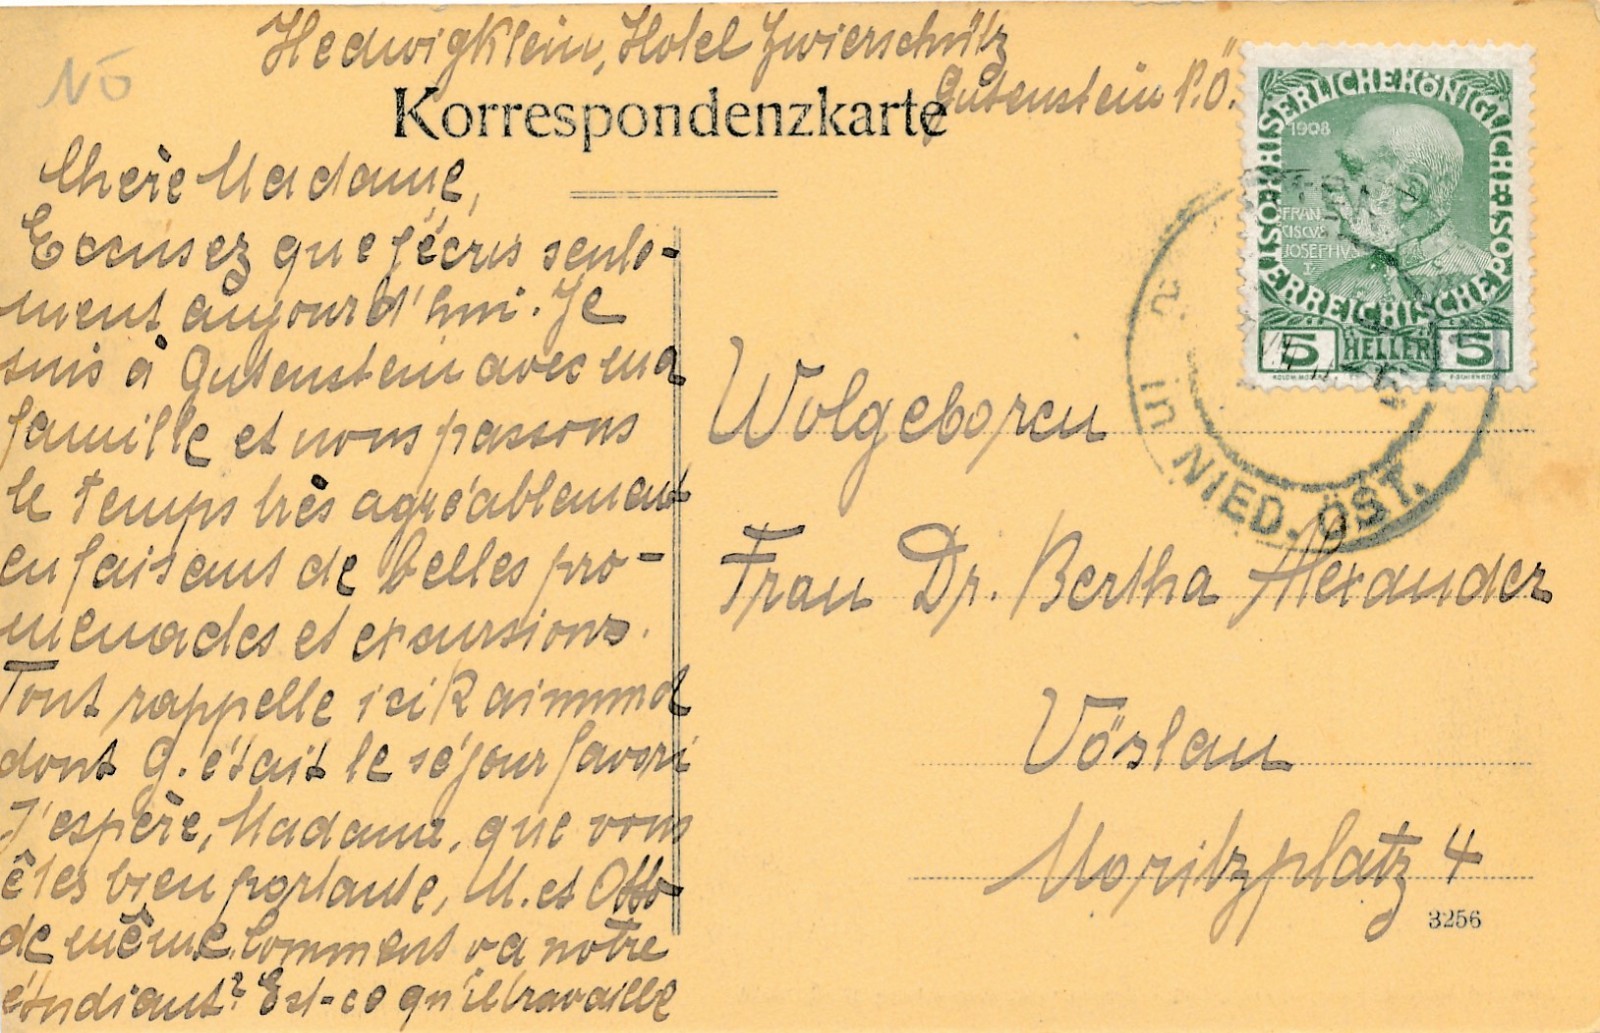 NÖ
Hedwig Klein, Hotel Zwierschütz
Gutenstein N.Ö.
Korrespondenzkarte
Chère Madame,
Excusez que j'écris seule-
ment aujourd'hui. Je
suis à Gutenstein avec ma
famille et nous passons
le temps très agréablement
en faisant de belles pro-
menades et excursions.
Tout rappelle ici Raimund
dont G. était le séjour favori
J'espère, Madame, que vous
êtes bien portante, M. et Otto
de même. Comment va notre
étudiant? Est-ce qu'il travaille
KAISERLICHE KÖNIGLICHE
ÖSTERREICHISCHE POST
1908
FRAN
CISCVS
JOSEPHVS
I
5 HELLER 5
in NIED. ÖST.
Wolgeboren
Frau Dr. Bertha Alexander
Vöslau
Moritzplatz 4
3256